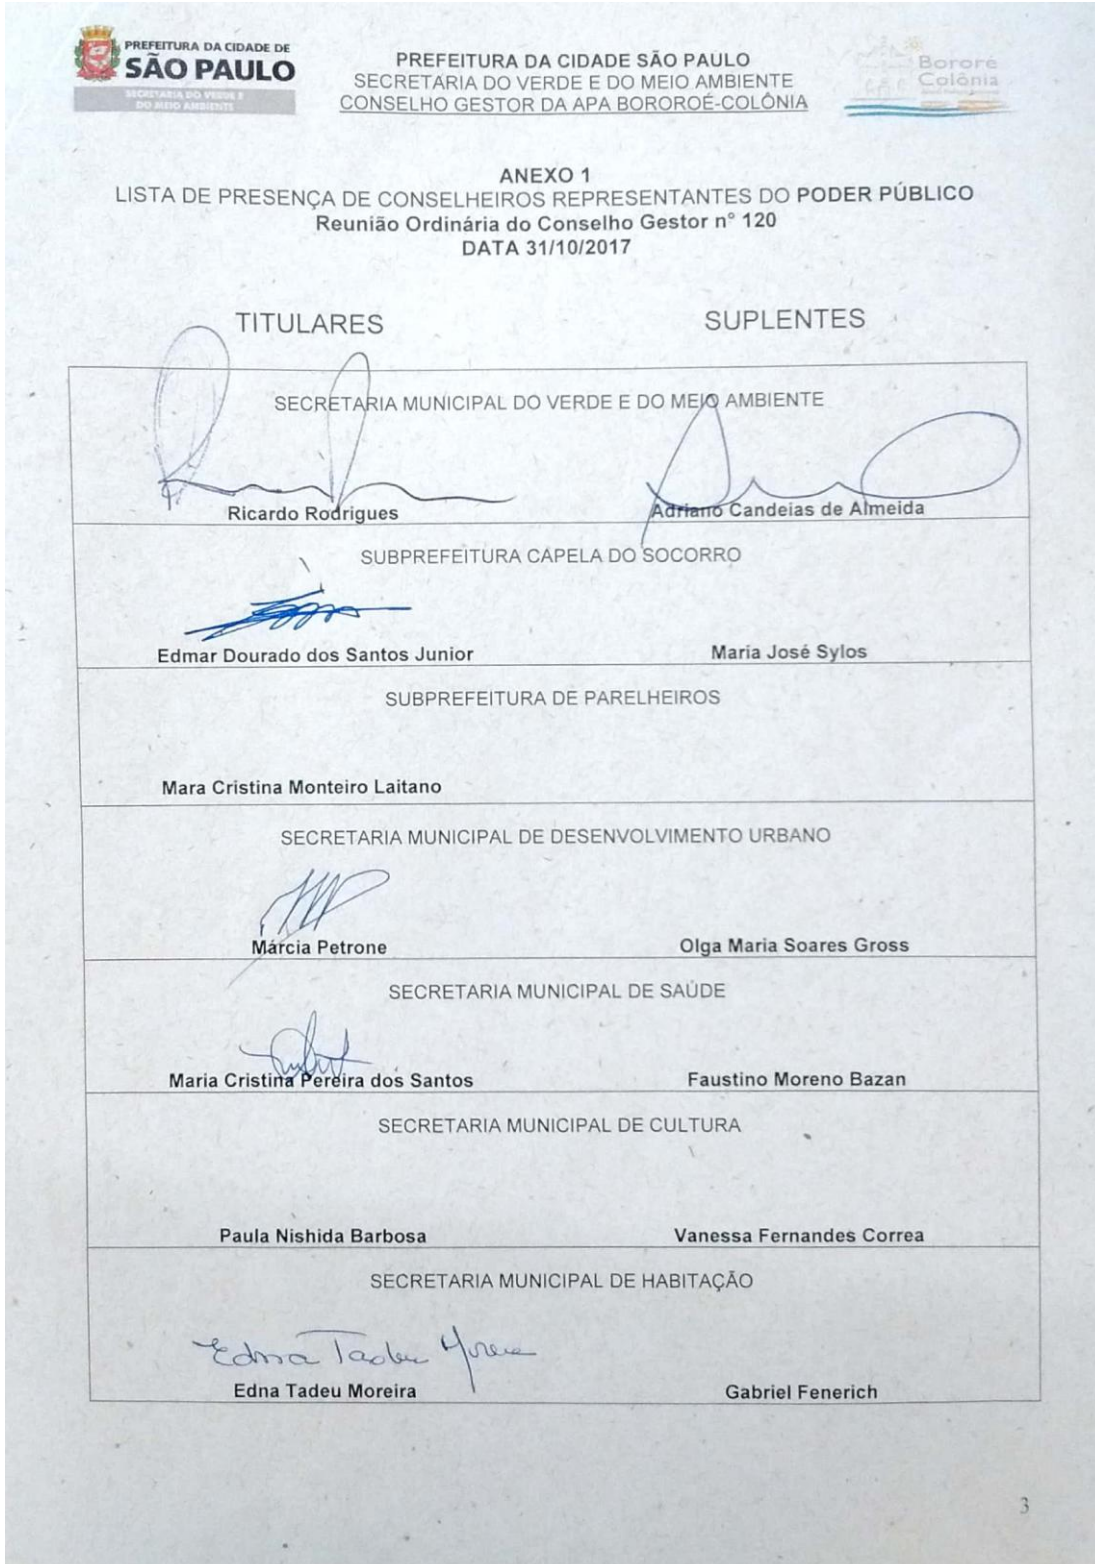 PREFEITURA DA CIDADE DE
SÃO PAULO
SECRETARIA DO VERDE E
DO MEIO AMBIENTE
PREFEITURA DA CIDADE SÃO PAULO
SECRETARIA DO VERDE E DO MEIO AMBIENTE
CONSELHO GESTOR DA APA BOROROÉ-COLÔNIA
Bororé
Colônia
ANEXO 1
LISTA DE PRESENÇA DE CONSELHEIROS REPRESENTANTES DO PODER PÚBLICO
Reunião Ordinária do Conselho Gestor n° 120
DATA 31/10/2017
TITULARES SUPLENTES
SECRETARIA MUNICIPAL DO VERDE E DO MEIO AMBIENTE
Ricardo Rodrigues Adriano Candeias de Almeida
SUBPREFEITURA CAPELA DO SOCORRO
Edmar Dourado dos Santos Junior Maria José Sylos
SUBPREFEITURA DE PARELHEIROS
Mara Cristina Monteiro Laitano
SECRETARIA MUNICIPAL DE DESENVOLVIMENTO URBANO
Márcia Petrone Olga Maria Soares Gross
SECRETARIA MUNICIPAL DE SAÚDE
Maria Cristina Pereira dos Santos Faustino Moreno Bazan
SECRETARIA MUNICIPAL DE CULTURA
Paula Nishida Barbosa Vanessa Fernandes Correa
SECRETARIA MUNICIPAL DE HABITAÇÃO
Edna Tadeu Moreira
Edna Tadeu Moreira Gabriel Fenerich
3